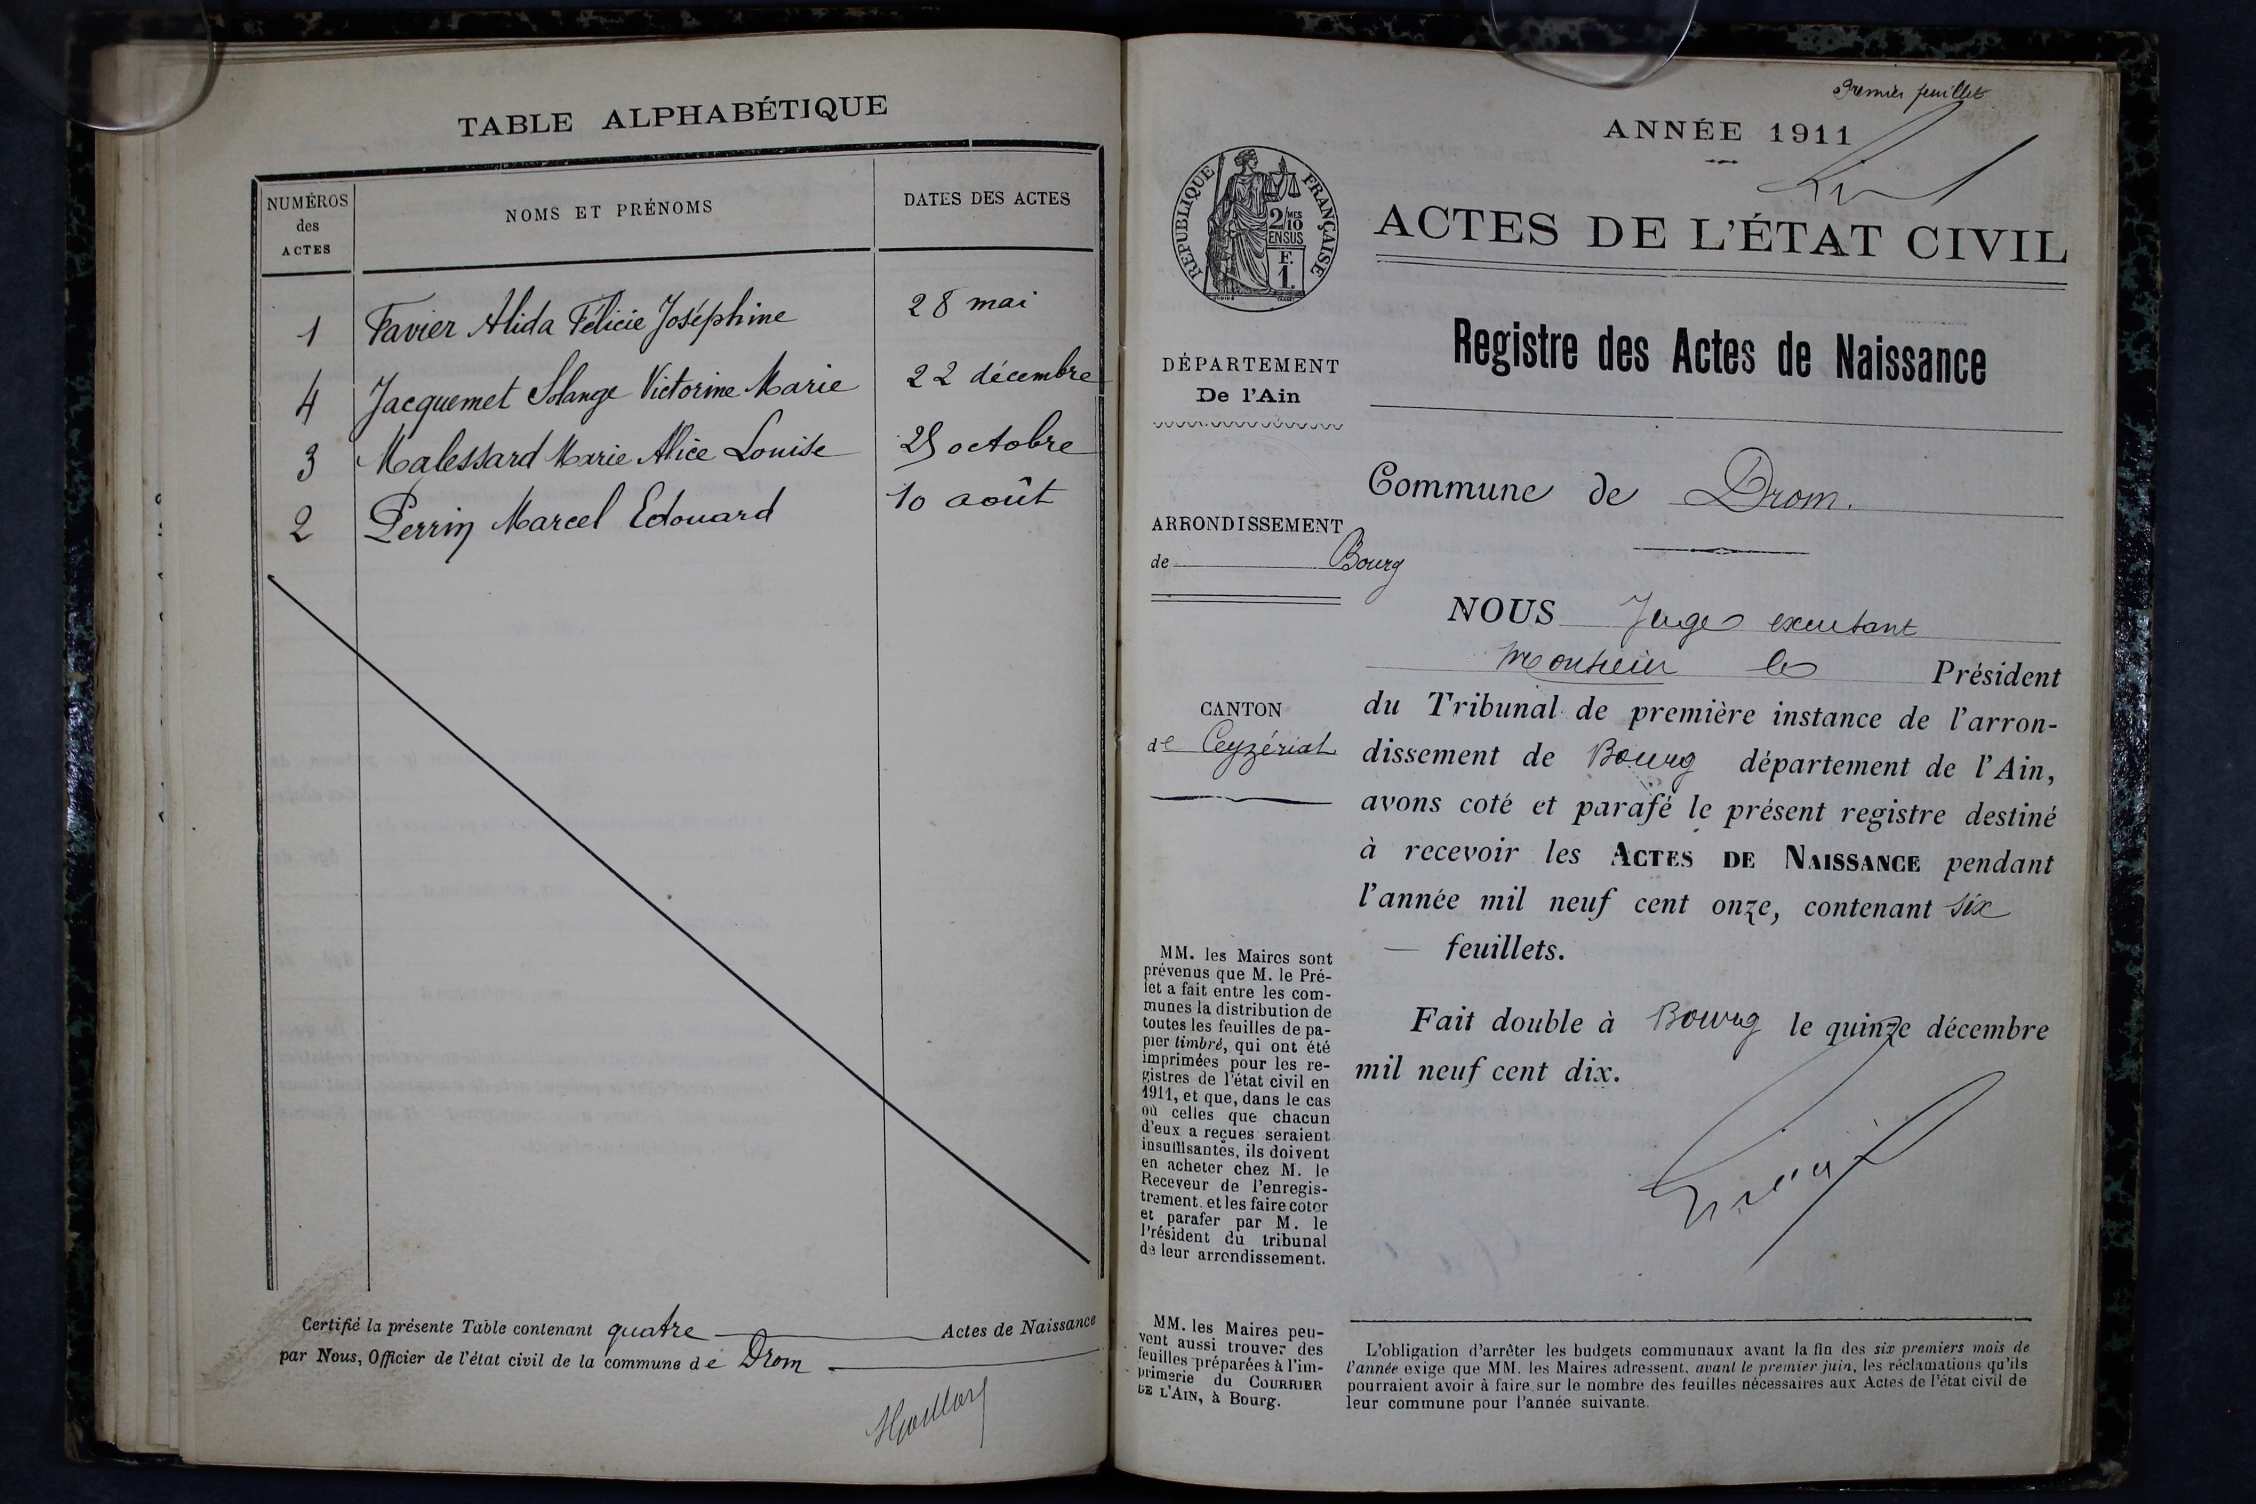 TABLE ALPHABÉTIQUE
NUMÉROS
des
ACTES
NOMS ET PRÉNOMS
DATES DES ACTES
1 Favier Alida Félicie Joséphine 28 mai
4 Jacquemet Solange Victorine Marie 22 décembre
3 Malessard Marie Alice Louise 25 octobre
2 Perrin Marcel Edouard 10 août
Certifié la présente Table contenant quatre Actes de Naissance
par Nous, Officier de l'état civil de la commune de Drom
Premier feuillet
ANNÉE 1911
RÉPUBLIQUE FRANÇAISE
2/10 MES
EN SUS
F.
1.
ACTES DE L'ÉTAT CIVIL
Registre des Actes de Naissance
DÉPARTEMENT
De l'Ain
Commune de Drom.
ARRONDISSEMENT
de Bourg
CANTON
de Ceyzériat
NOUS Juge
Monsieur le Président
du Tribunal de première instance de l'arron-
dissement de Bourg département de l'Ain,
avons coté et parafé le présent registre destiné
à recevoir les ACTES DE NAISSANCE pendant
l'année mil neuf cent onze, contenant six
— feuillets.
Fait double à Bourg le quinze décembre
mil neuf cent dix.
MM. les Maires sont
prévenus que M. le Pré-
fet a fait entre les com-
munes la distribution de
toutes les feuilles de pa-
pier timbré, qui ont été
imprimées pour les re-
gistres de l'état civil en
1911, et que, dans le cas
où celles que chacun
d'eux a reçues seraient
insuffisantes, ils doivent
en acheter chez M. le
Receveur de l'enregis-
trement. et les faire coter
et parafer par M. le
Président du tribunal
de leur arrondissement.
MM. les Maires peu-
vent aussi trouver des
feuilles préparées à l'im-
primerie du COURRIER
DE L'AIN, à Bourg.
L'obligation d'arrêter les budgets communaux avant la fin des six premiers mois de
l'année exige que MM. les Maires adressent, avant le premier juin, les réclamations qu'ils
pourraient avoir à faire sur le nombre des feuilles nécessaires aux Actes de l'état civil de
leur commune pour l'année suivante.